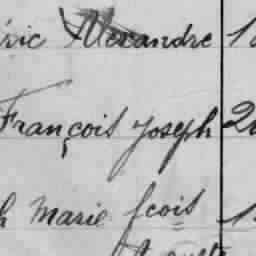 ric Alexandre 1
François Joseph 2
h Marie fcois 1